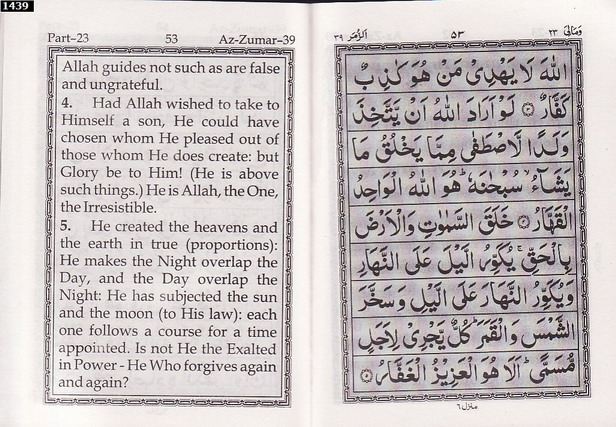 1439
Part-23 53 Az-Zumar-39
Allah guides not such as are false
and ungrateful.
4. Had Allah wished to take to
Himself a son, He could have
chosen whom He pleased out of
those whom He does create: but
Glory be to Him! (He is above
such things.) He is Allah, the One,
the Irresistible.
5. He created the heavens and
the earth in true (proportions):
He makes the Night overlap the
Day, and the Day overlap the
Night: He has subjected the sun
and the moon (to His law): each
one follows a course for a time
appointed. Is not He the Exalted
in Power - He Who forgives again
and again?
وَمَالِیَ ٢٣ ٥٣ اَلزُّمَر ٣٩
اللّٰهَ لَا يَهْدِىْ مَنْ هُوَ كٰذِبٌ
كَفَّارٌ ۝ لَوْ اَرَادَ اللّٰهُ اَنْ يَّتَّخِذَ
وَلَدًا لَّاصْطَفٰى مِمَّا يَخْلُقُ مَا
يَشَآءُ ۙ سُبْحٰنَهٗ ؕ هُوَ اللّٰهُ الْوَاحِدُ
الْقَهَّارُ ۝ خَلَقَ السَّمٰوٰتِ وَالْاَرْضَ
بِالْحَقِّ ۚ يُكَوِّرُ الَّيْلَ عَلَى النَّهَارِ
وَيُكَوِّرُ النَّهَارَ عَلَى الَّيْلِ وَسَخَّرَ
الشَّمْسَ وَالْقَمَرَ ؕ كُلٌّ يَّجْرِىْ لِاَجَلٍ
مُّسَمًّى ؕ اَلَا هُوَ الْعَزِيْزُ الْغَفَّارُ ۝
منزل ٦